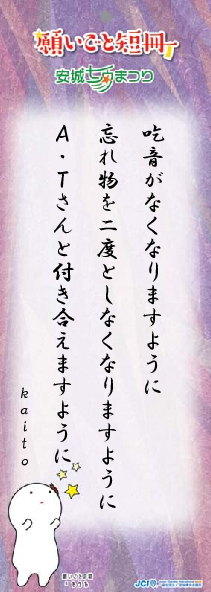 願いごと短冊
安城七夕まつり
吃音がなくなりますように
忘れ物を二度としなくなりますように
A・Tさんと付き合えますように
kaito
JCI